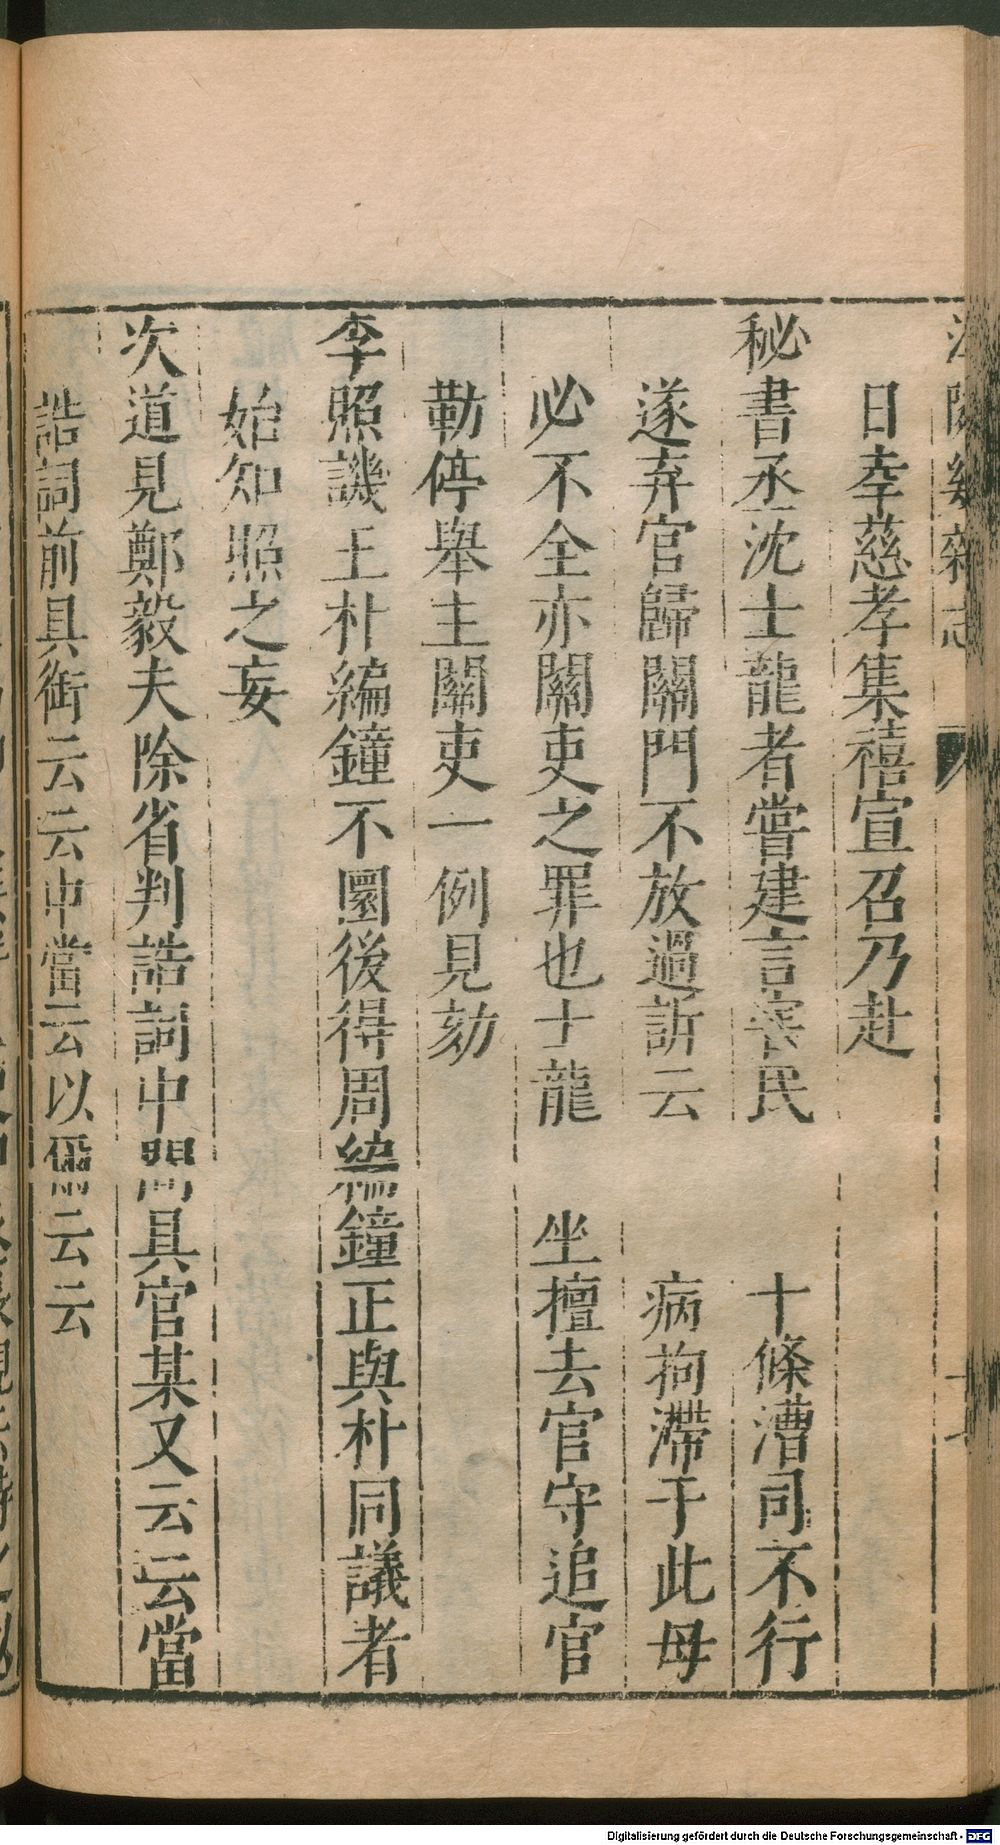 日李慈孝集禧宣召乃赴
秘書丞沈士龍者嘗建言害民 十條漕司不行
遂弃官歸關門不放過訴云 病拘滯于此母
必不全亦關吏之罪也士龍 坐擅去官守追官
勒停舉主關吏一例見劾
李照譏王朴編鐘不圜後得周編鐘正與朴同議者
始知照之妄
次道見鄭毅夫除省判誥詞中間具官某又云云當
誥詞前具銜云云中當云以爾云云
Digitalisierung gefördert durch die Deutsche Forschungsgemeinschaft - DFG